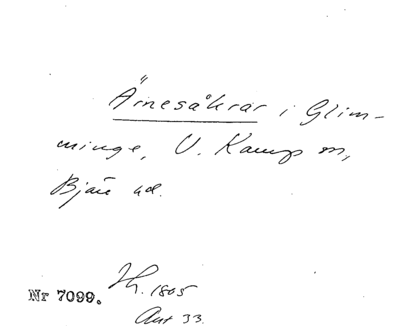 Ärnesåkrar i Glim-
minge, V. Karup sn,
Bjäre hd.
Nr 7099.
1805
Akt 33.